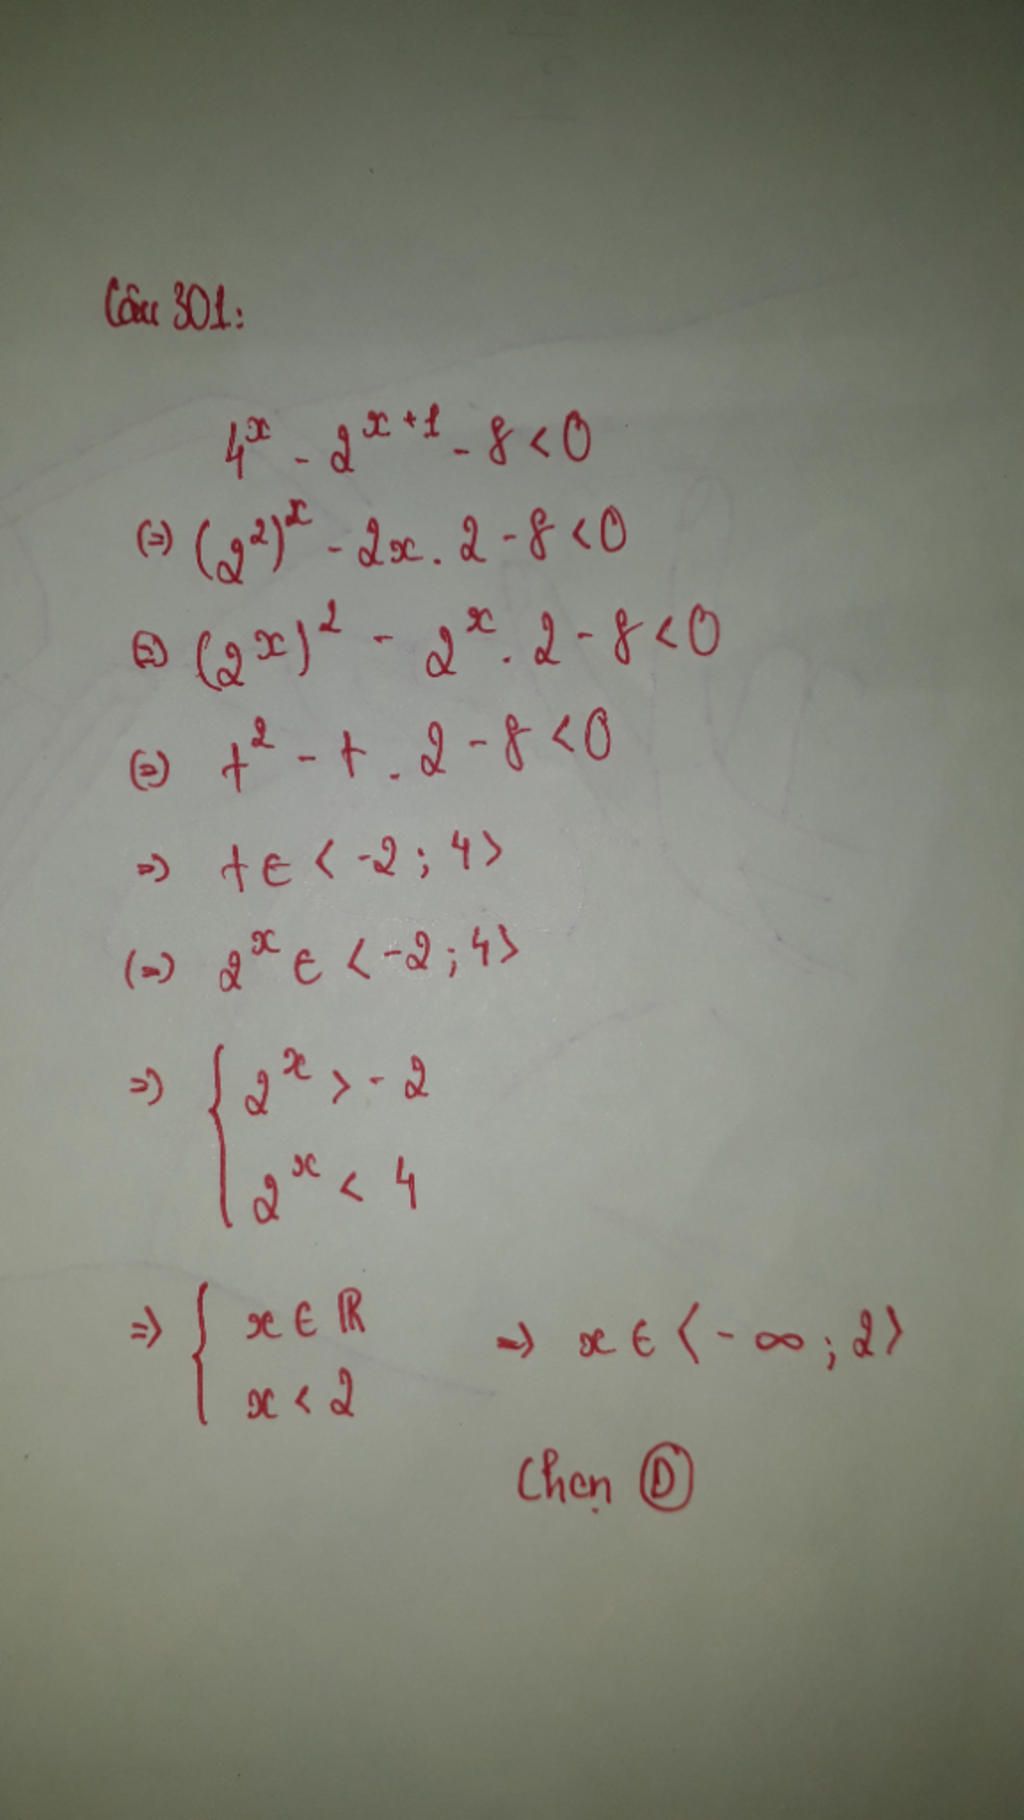 Câu 301:
4^x - 2^{x+1} - 8 < 0
(=) (2^2)^x - 2x . 2 - 8 < 0
(=) (2^x)^2 - 2^x . 2 - 8 < 0
(=) t^2 - t . 2 - 8 < 0
=> t ∈ < -2 ; 4 >
(=) 2^x ∈ < -2 ; 4 >
=> { 2^x > - 2
2^x < 4
=> { x ∈ ℝ => x ∈ < - ∞ ; 2 >
x < 2
Chọn D